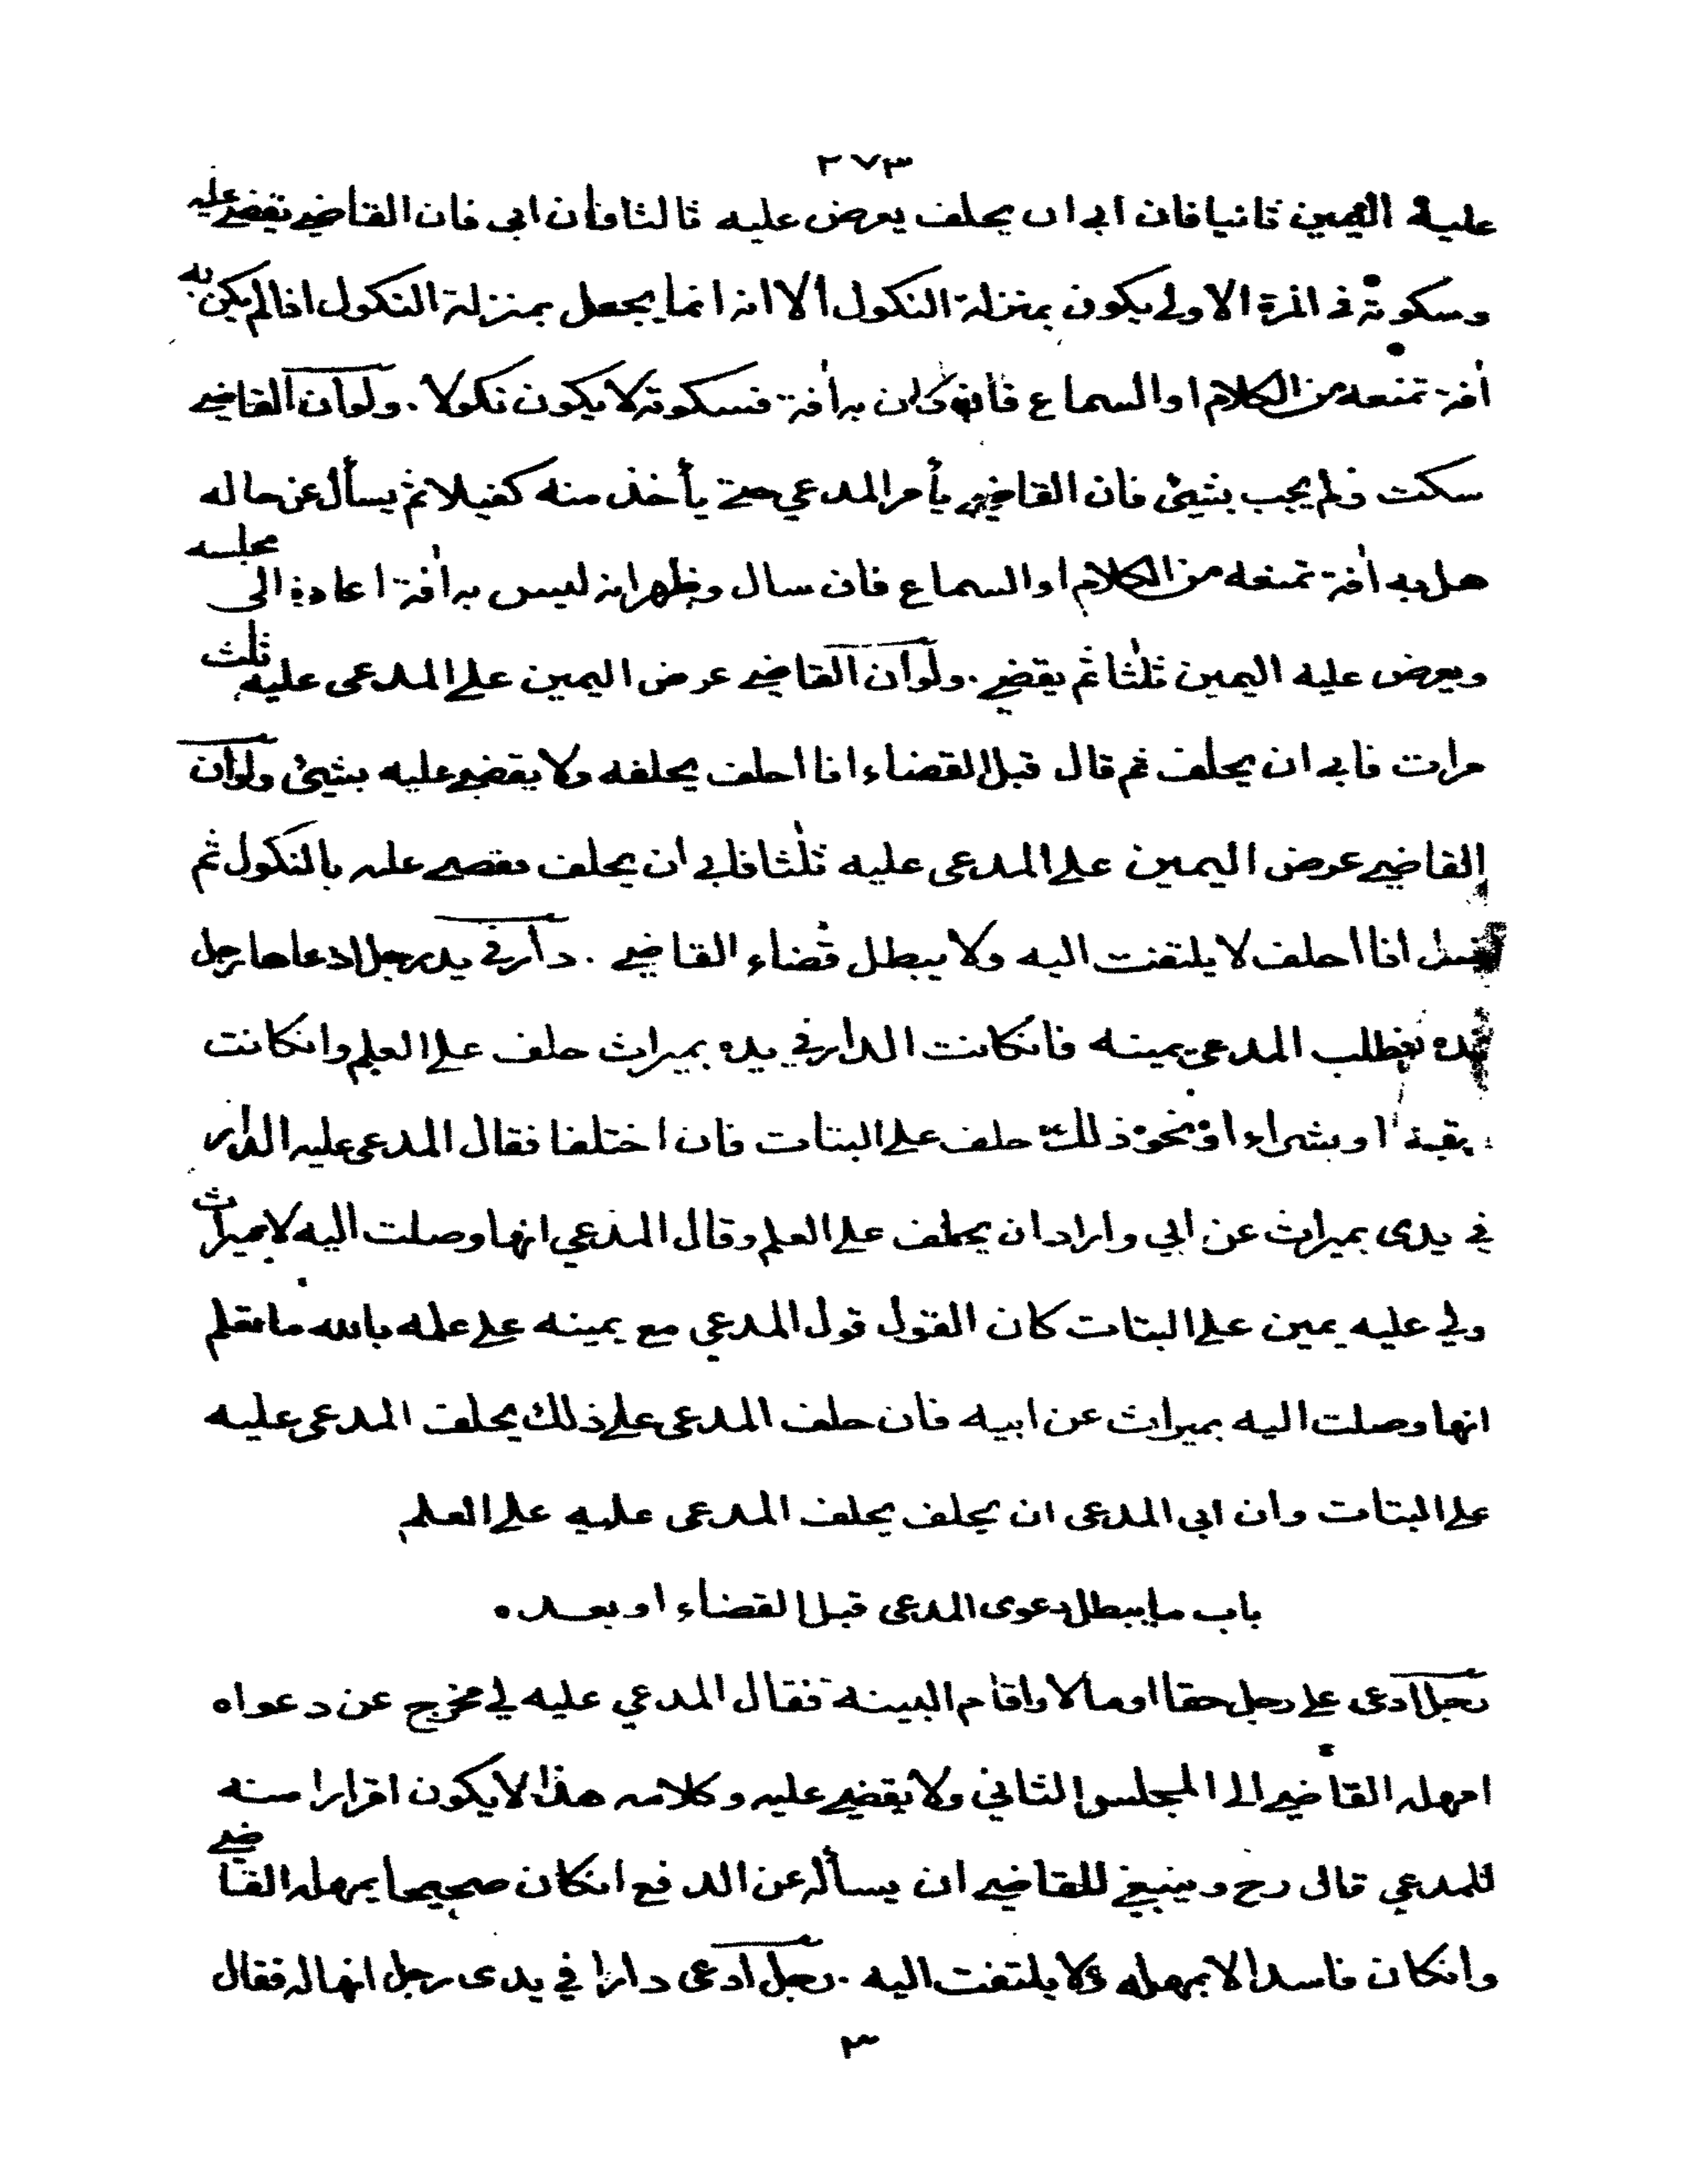 ٢٧٣
عليه اليمين ثانيا فان ابى ان يحلف يعرض عليه ثالثا فأن ابى فان القاضي يقضي عليه
وسكوته في المرة الاولى يكون بمنزلة النكول الا انه انما يجعل بمنزلة النكول اذا لم يكن به
أفة تمنعه من الكلام او السماع فان كان به أفة فسكوته لا يكون نكولا . ولو أن القاضي
سكت ولم يجب بشيئ فان القاضي يأمر المدعي حتى يأخذ منه كفيلا ثم يسأل عن حاله
هل به أفة تمنعه من الكلام او السماع فان سال وظهر انه ليس به أفة اعاده الى مجلسه
ويعرض عليه اليمين ثلثا ثم يقضي . ولو أن القاضي عرض اليمين على المدعى عليه ثلث
مرات فابى ان يحلف ثم قال قبل القضاء انا احلف يحلفه ولا يقضي عليه بشيئ ولو أن
القاضي عرض اليمين على المدعى عليه ثلثا فابى ان يحلف فقضى عليه بالنكول ثم
انا احلف لا يلتفت اليه ولا يبطل قضاء القاضي . دار في يد رجل ادعاها رجل
يده فطلب المدعي يمينه فانكانت الدار في يده بميراث حلف على العلم وانكانت
بهبة او بشراء او نحو ذلك حلف على البتات فان اختلفا فقال المدعى عليه الدار
في يدى بميراث عن ابي واراد ان يحلف على العلم وقال المدعي انها وصلت اليه لا بميراث
ولي عليه يمين على البتات كان القول قول المدعي مع يمينه على علمه بالله ما تعلم
انها وصلت اليه بميراث عن ابيه فان حلف المدعى على ذلك يحلف المدعى عليه
على البتات وان ابى المدعى ان يحلف يحلف المدعى عليه على العلم
باب ما يبطل دعوى المدعى قبل القضاء او بعده
رجل ادعى على رجل حقا او مالا واقام البينة فقال المدعي عليه لي مخرج عن دعواه
امهله القاضي الى المجلس الثاني ولا يقضي عليه وكلامه هذا لا يكون اقرارا منه
للمدعي قال رح وينبغي للقاضي ان يسأله عن الدفع انكان صحيحا يمهله القاضي
وانكان فاسدا لا يمهله ولا يلتفت اليه . رجل ادعى دارا في يدى رجل انها له فقال
٣